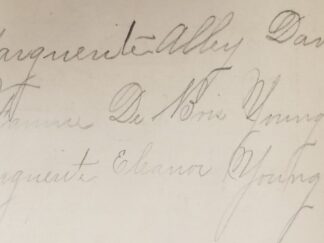 arguerite Alley Dav
Fannie De Bois Young
rguerite Eleanor Young